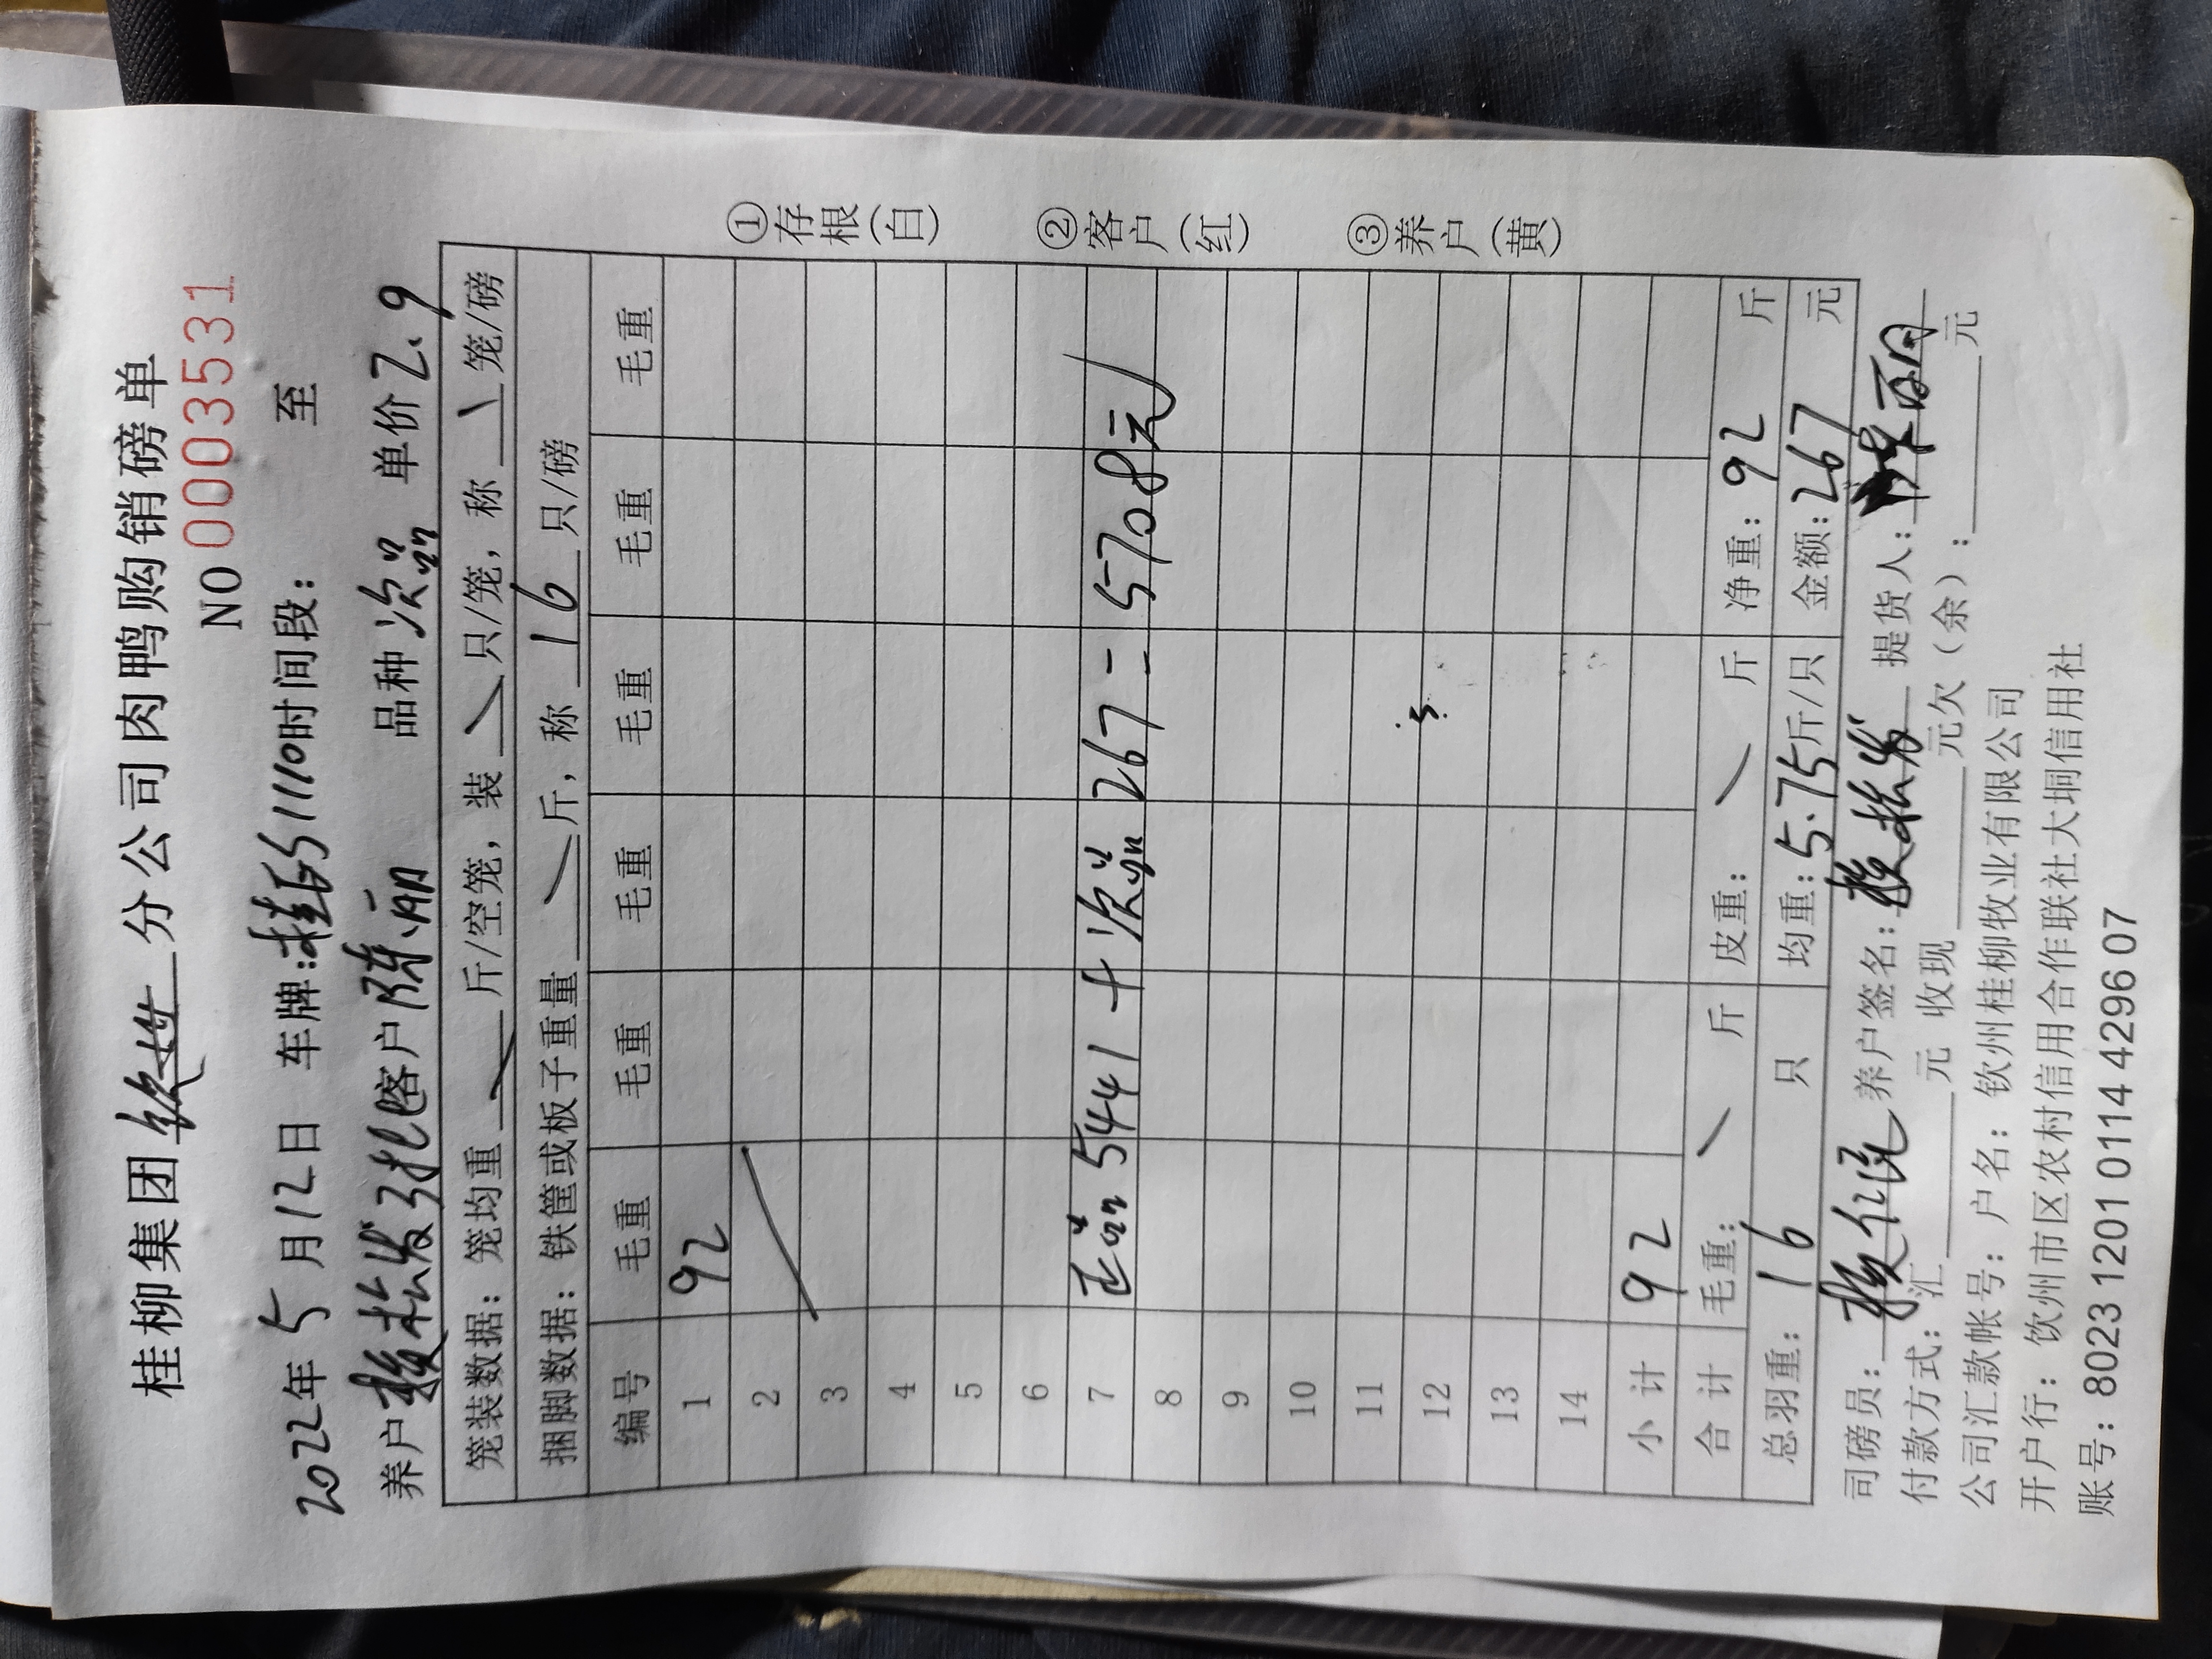 桂柳集团 钦州 分公司肉鸭购销磅单
NO 0003531
2022年 5 月 12 日 车牌: 1110 时间段: 至
养户 松发 客户 陈丽 品种 次品 单价 2.9
笼装数据: 笼均重 斤/空笼, 装 只/笼, 称 笼/磅
捆脚数据: 铁筐或板子重量 斤, 称 16 只/磅
编号 毛重 毛重 毛重 毛重 毛重 毛重
1 92
2
3
4
5
6
7 正品 5441 + 次品 267 = 5708元
8
9
10
11
12
13
14
小 计 92
合 计 毛重: 斤 皮重: 斤 净重: 92 斤
总羽重: 16 只 均重: 5.75 斤/只 金额: 267 元
司磅员: 养户签名: 松发 提货人: 陈丽
付款方式: 汇 元 收现 元欠(余): 元
公司汇款帐号: 户名: 钦州桂柳牧业有限公司
开户行: 钦州市区农村信用合作联社大垌信用社
账号: 8023 1201 0114 4296 07
①存根(白)
②客户(红)
③养户(黄)